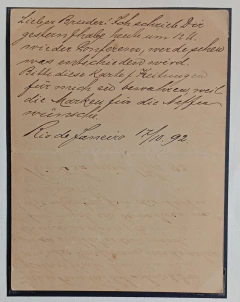 Lieber Bruder! Ich schrieb Dir
gestern & habe heute um 12 U.
wieder Conferenz, werde sehen
was entschieden wird.
Bitte diese Karte f. Zeitungen
für mich zu bewahren, weil
die Marken für die Neffen
wünsche.
Rio de Janeiro 17/10. 92.